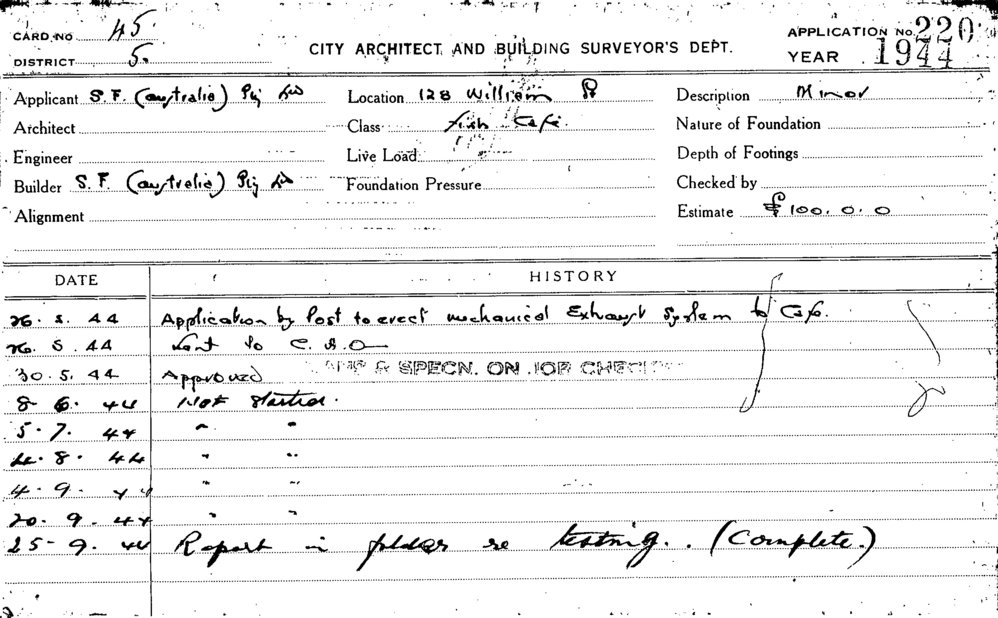 CARD NO 45.
DISTRICT 5.
CITY ARCHITECT AND BUILDING SURVEYOR'S DEPT.
APPLICATION No. 220
YEAR 1944
Applicant S.F. (Australia) Pty Ltd
Location 128 William St
Description Minor
Architect
Class Fish Café.
Nature of Foundation
Engineer
Live Load
Depth of Footings
Builder S.F. (Australia) Pty Ltd
Foundation Pressure
Checked by
Alignment
Estimate £100.0.0
DATE HISTORY
26.5.44 Application by Post to erect mechanical Exhaust System to Cafe.
26.5.44 Sent to C.H.O
30.5.44 Approved & SPECN. ON JOB
8-6.44 Not Started.
5.7.44 " "
4.8.44 " "
4.9.44 " "
20.9.44 " "
25-9.44 Report in folder re testing. (Complete.)